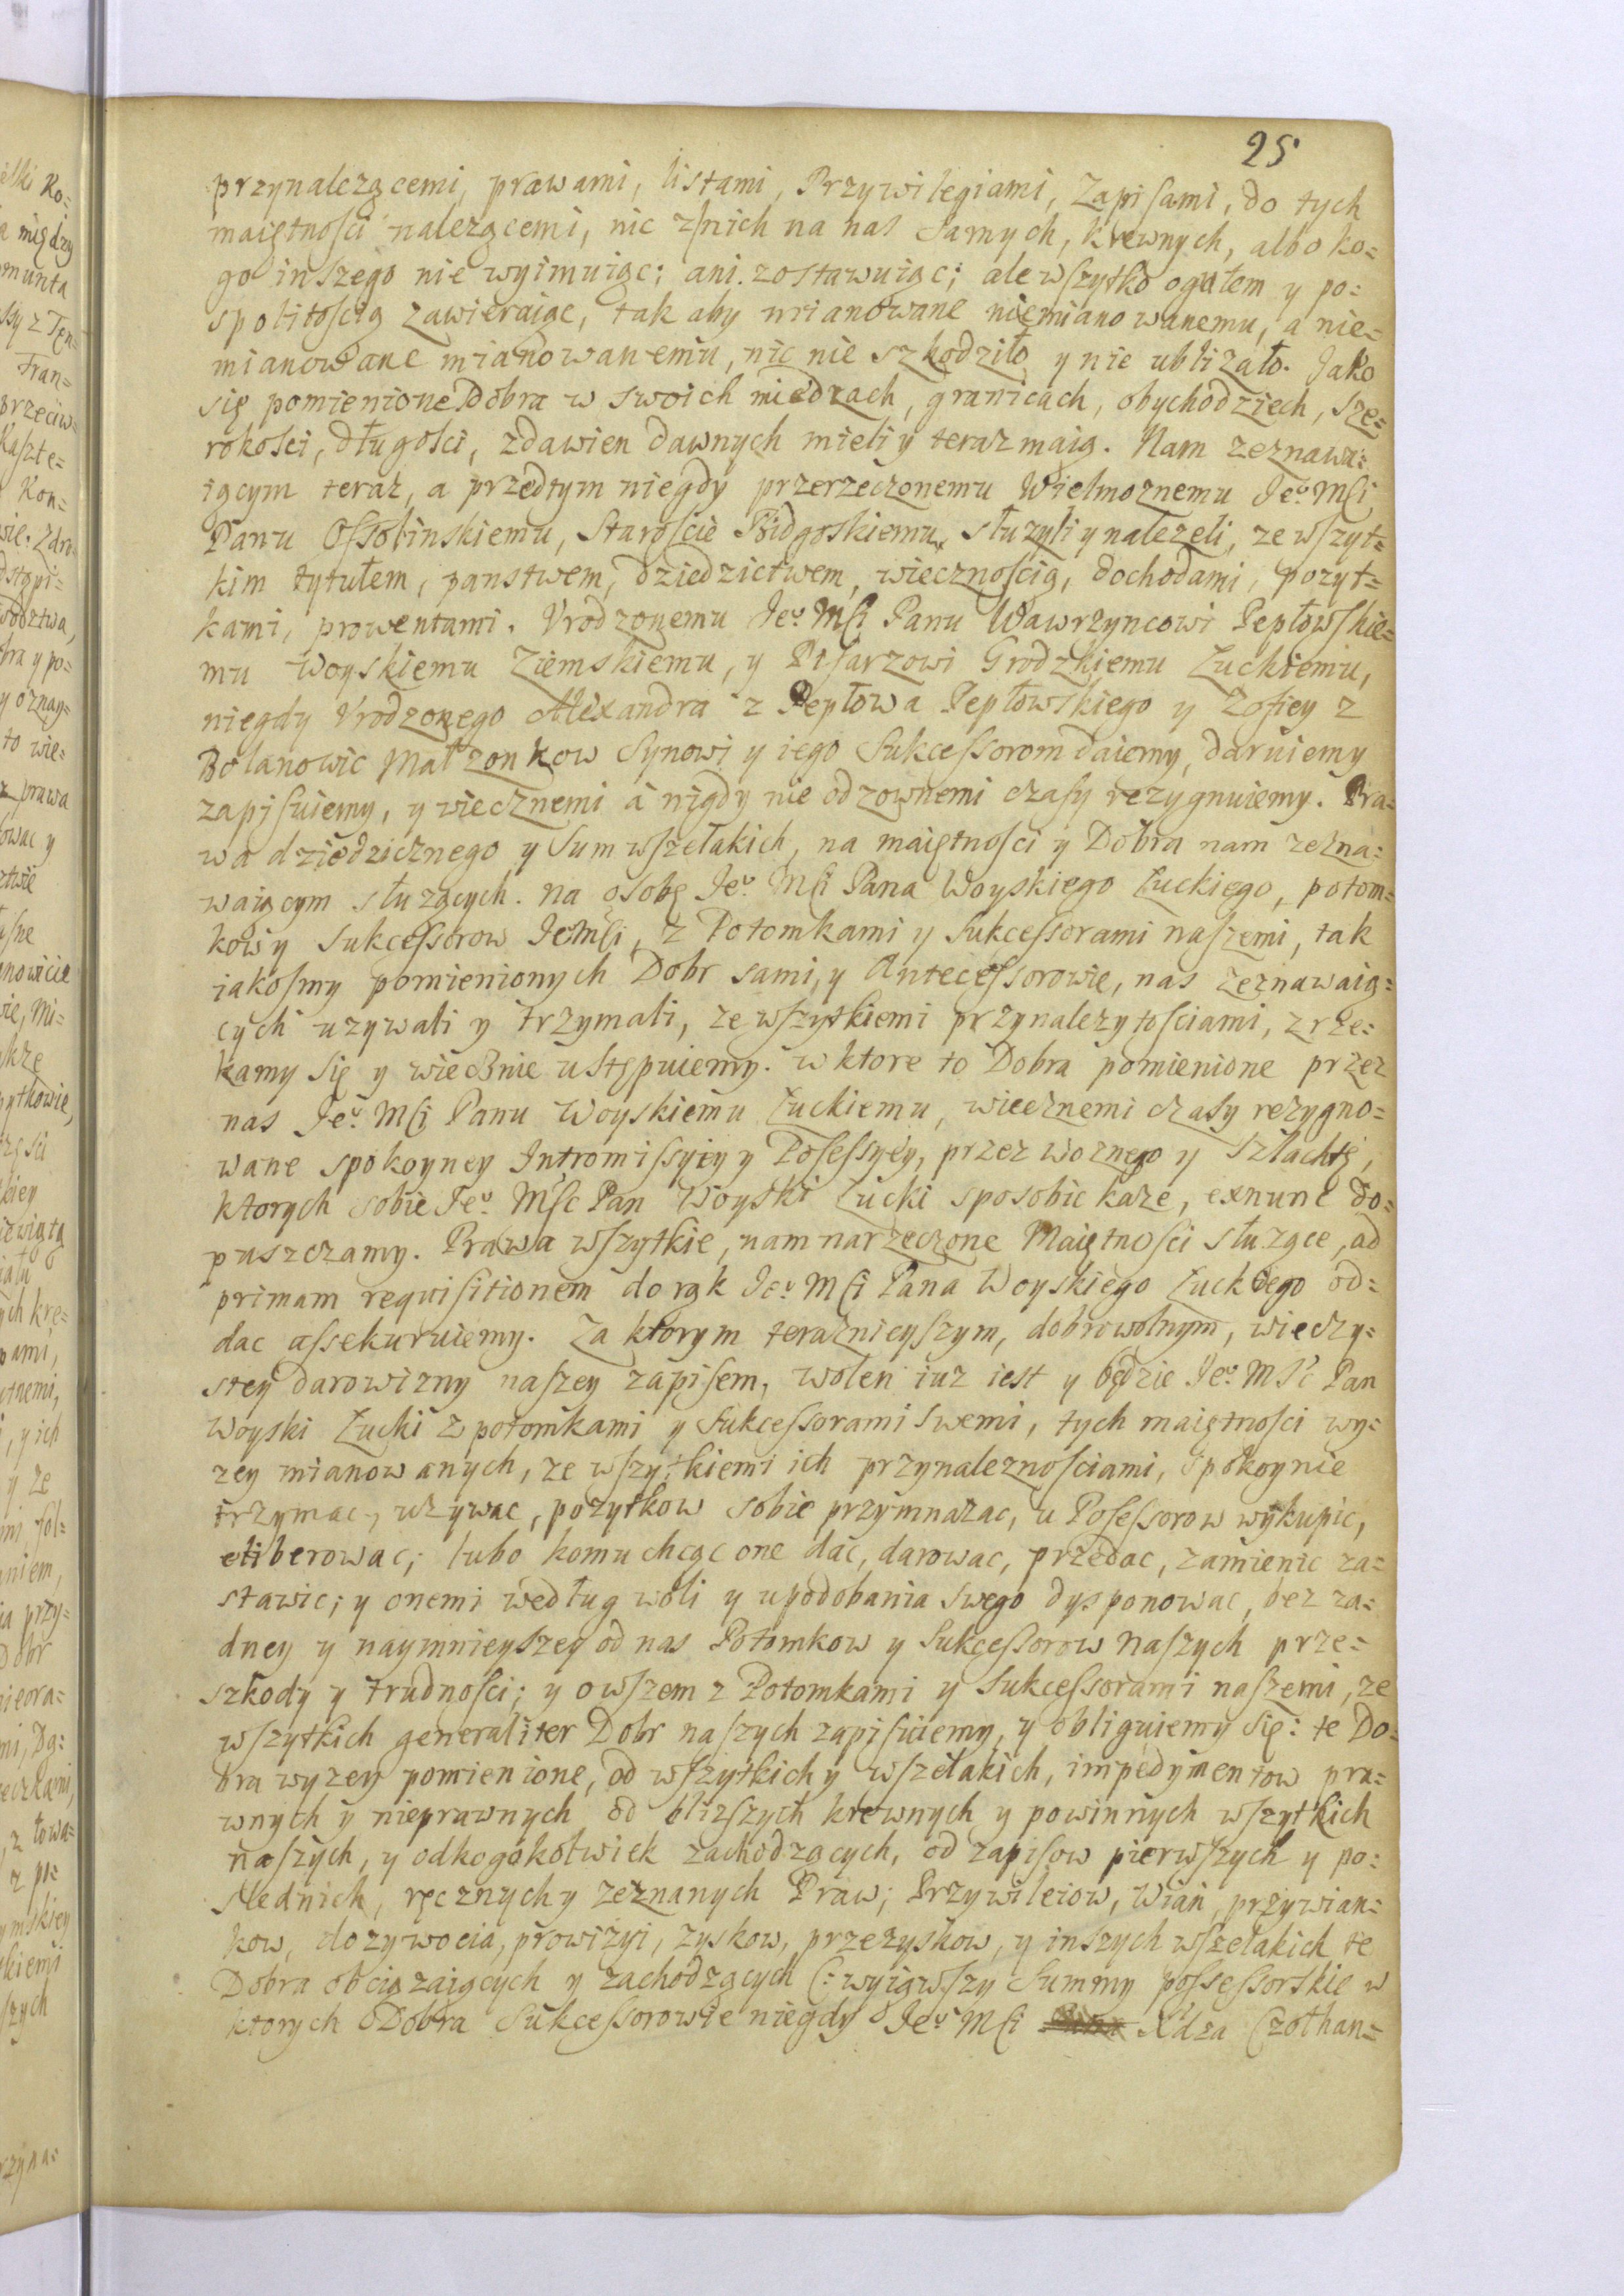 25
przynalezącemi, prawami, listami, Przywilegiami, Zapisami, do tych
maiętnosci nalezącemi, nic z nich na nas samych, krewnych, albo ko=
go inszego nie wyimuiąc; ani zostawuiąc; ale wszytko ogułem y po=
spolitoscią zawieraiąc, tak aby mianowane niemianowanemu, a nie=
mianowane mianowanemu, nic nie szkodziło y nie ubliżało. Jako
się pomienione Dobra w swoich miedzach, granicach, obychodziech, sze=
rokosci, długosci, zdawien dawnych mieli y teraz maią. Nam zeznawa=
iącym teraz, a przedtym niegdy przerzeczonemu Wielmoznemu Jeo Mści
Panu Ossolinskiemu, Staroscie Bidgoskiemu służyli y nalezeli, ze wszyt=
kim tytułem, panstwem, dziedzictwem, wiecznoscią, dochodami, pozyt=
kami, prowentami. Vrodzonemu Jeo Mści Panu Wawrzyncowi Pepłowskie=
mu Woyskiemu Ziemskiemu, y Pisarzowi Grodzkiemu Łuckiemu,
niegdy Vrodzonego Alexandra z Pepłowa Pepłowskiego y Zofiey z
Bolanowic Małzonkow Synowi y iego Sukcessorom daiemy, daruiemy
zapisuiemy, y wiecznemi a nigdy nie odzownemi czasy rezygnuiemy. Pra=
wa dziedzicznego y Sum wszelakich, na maiętnosci y Dobra nam zezna=
waiącym służących. na osobę Jeo Mści Pana Woyskiego Łuckiego, potom=
kow y Sukcessorow JeMści, z Potomkami y Sukcessorami naszemi, tak
iakosmy pomienionych Dobr sami, y Antecessorowie, nas zeznawaią=
cych uzywali y trzymali, ze wszytkiemi przynalezytosciami, zrze=
kamy się y wiecznie ustępuiemy. w ktore to Dobra pomienione przez
nas Jeo Mści Panu Woyskiemu Łuckiemu, wiecznemi czasy rezygno=
wane spokoyney Intromissyiey y Posessyey, przez woznego y Szlachtę,
ktorych sobie Jeo Mśc Pan Woyski Łucki sposobic kaze, exnunc do=
puszczamy. Prawa wszytkie, nam narzeczone Maiętnosci służące, ad
primam requisitionem do rąk Jeo Mści Pana Woyskiego Łuckiego od=
dac assekuruiemy. Za ktorym teraznieyszym, dobrowolnym, wieczy=
stey darowizny naszey zapisem, wolen iuz iest y będzie Jeo Mśc Pan
Woyski Łucki z potomkami y Sukcessorami swemi, tych maiętnosci wy=
zey mianowanych, ze wszytkiemi ich przynaleznosciami, spokoynie
trzymac, uzywac, pozytkow sobie przymnazac, u Posessorow wykupic,
eliberowac; lubo komu chcąc one dac, darowac, przedac, zamienic za=
stawic; y onemi według woli y upodobania swego dysponowac, bez za=
dney y naymnieyszey od nas Potomkow y Sukcessorow naszych prze=
szkody y trudnosci; y owszem z Potomkami y Sukcessorami naszemi, ze
wszytkich generaliter Dobr naszych zapisuiemy, y obliguiemy się: te Do=
bra wyzey pomienione, od wszytkich y wszelakich, impedymentow pra=
wnych y nieprawnych od blizszych krewnych y powinnych wszytkich
naszych, y odkogokolwiek zachodzących, od zapisow pierwszych y po=
slednich, ręcznych y zeznanych Praw, Przywileiow, Wian, przywian=
kow, dozywocia, prowizyi, zyskow, przezyskow, y inszych wszelakich te
Dobra obciązaiących y zachodzących (: wyiąwszy Summy possessorskie w
ktorych Dobra Sukcessorowie niegdy Jeo Mści Xdza Czołhan=